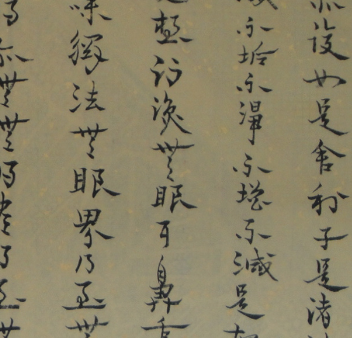 亦復如是舍利子是諸法
滅不垢不淨不增不減是故
受想行識無眼耳鼻舌
味觸法無眼界乃至無
明亦無無明盡乃至無